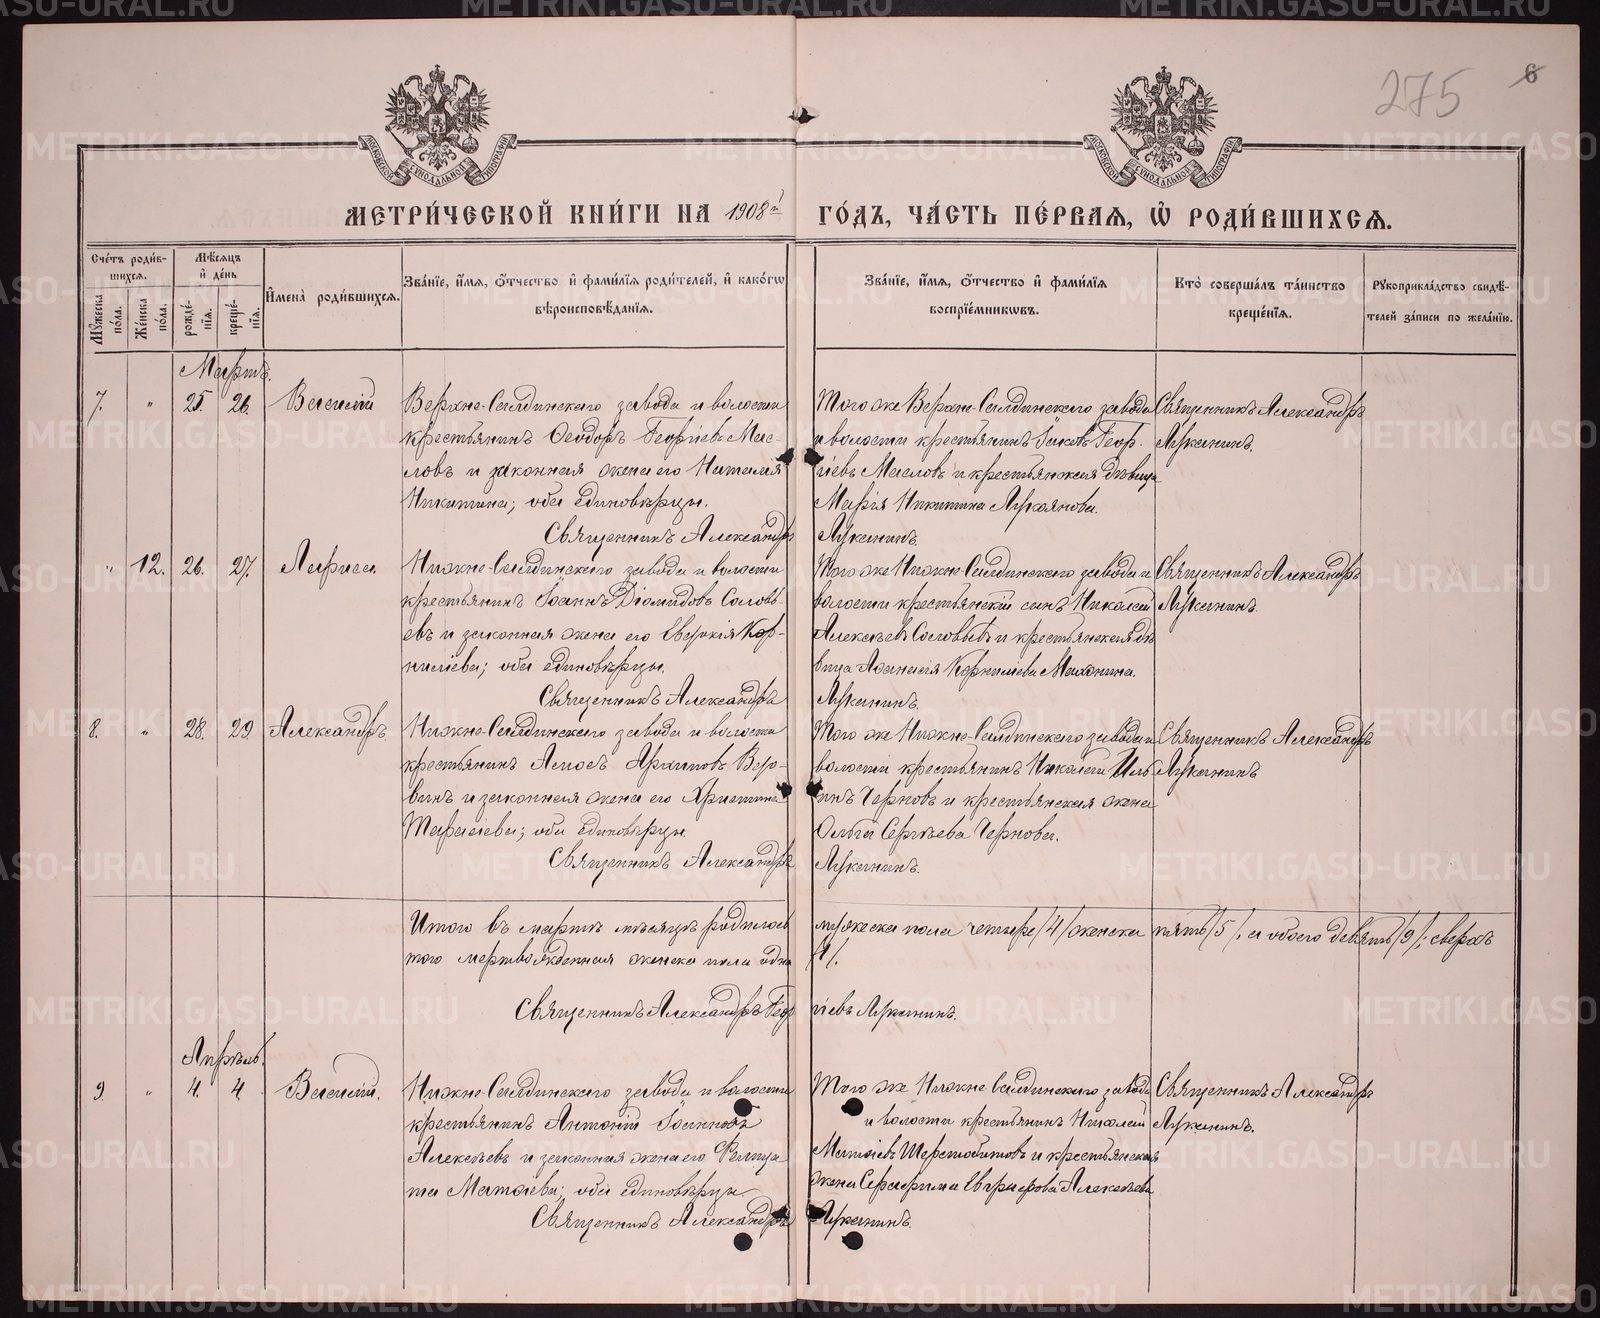 275 6
МОСКОВСКОЙ СѴНОДАЛЬНОЙ ТИПОГРАФІИ
МОСКОВСКОЙ СѴНОДАЛЬНОЙ ТИПОГРАФІИ
МЕТРИ́ЧЕСКОЙ КНИ́ГИ НА 1908й ГО́ДЪ, ЧА́СТЬ ПЕ́РВАЯ, Ѡ РОДИ́ВШИХСЯ.
Сче́тъ роди́вшихся.
Мꙋжеска по́ла.
Же́нска по́ла.
Мѣ́сяцъ и҆ де́нь
рожде́нїѧ.
креще́нїѧ.
И҆мена̀ роди́вшихсѧ.
Зва́нїе, и҆́мѧ, ѻ҆́тчество и҆ фами́лїѧ роди́телей, и҆ како́гѡ
вѣроисповѣ́данїѧ.
Зва́нїе, и҆́мѧ, ѻ҆́тчество и҆ фами́лїѧ
воспрїе́мникѡвъ.
Кто̀ соверша́лъ та́инство
креще́нїѧ.
Рꙋкоприкла́дство свидѣ́-
телей за́писи по жела́нїю.
Мартъ.
7. " 25. 26. Василій
Верхне-Салдинскаго завода и волости
крестьянинъ Ѳеодоръ Георгіевъ Мас-
ловъ и законная жена его Наталія
Никитина; оба единовѣрцы.
Священникъ Александръ Луканинъ.
Того же Верхне-Салдинскаго завода
и волости крестьянинъ Іаковъ Геор-
гіевъ Масловъ и крестьянская дѣвица
Марія Никитина Лукоянова.
Священникъ Александръ
Луканинъ.
" 12. 26. 27. Лариса.
Нижне-Салдинскаго завода и волости
крестьянинъ Іоаннъ Діомидовъ Соловь-
евъ и законная жена его Еѵоркія Кор-
ниліева; оба единовѣрцы.
Священникъ Александръ Луканинъ.
Того же Нижне-Салдинскаго завода и
волости крестьянскій сынъ Николай
Алексѣевъ Соловьевъ и крестьянская дѣ-
вица Аѳанасія Корниліева Маханина.
Священникъ Александръ
Луканинъ.
8. " 28. 29. Александръ.
Нижне-Салдинскаго завода и волости
крестьянинъ Амосъ Архиповъ Веро-
винъ и законная жена его Христина
Тарасіева; оба единовѣрцы.
Священникъ Александръ Луканинъ.
Того же Нижне-Салдинскаго завода и
волости крестьянинъ Николай Иль-
инъ Черновъ и крестьянская жена
Ольга Сергѣева Чернова.
Священникъ Александръ
Луканинъ
Итого въ мартѣ мѣсяцѣ родилось мужеска пола четыре /4/ женска пять /5/, а обоего девять /9/; сверхъ
того мертворожденная женска пола одна /1/.
Священникъ Александръ Георгіевъ Луканинъ.
Апрѣль.
9. " 4. 4 Василій.
Нижне-Салдинскаго завода и волости
крестьянинъ Антоній Іоанновъ
Алексѣевъ и законная жена его Фелица-
та Матѳіева; оба единовѣрцы.
Священникъ Александръ Луканинъ.
Того же Нижне Салдинскаго завода
и волости крестьянинъ Николай
Матѳіевъ Шерстобитовъ и крестьянская
жена Серафима Евграфова Алексѣева
Священникъ Александръ
Луканинъ.
METRIKI.GASO-URAL.RU